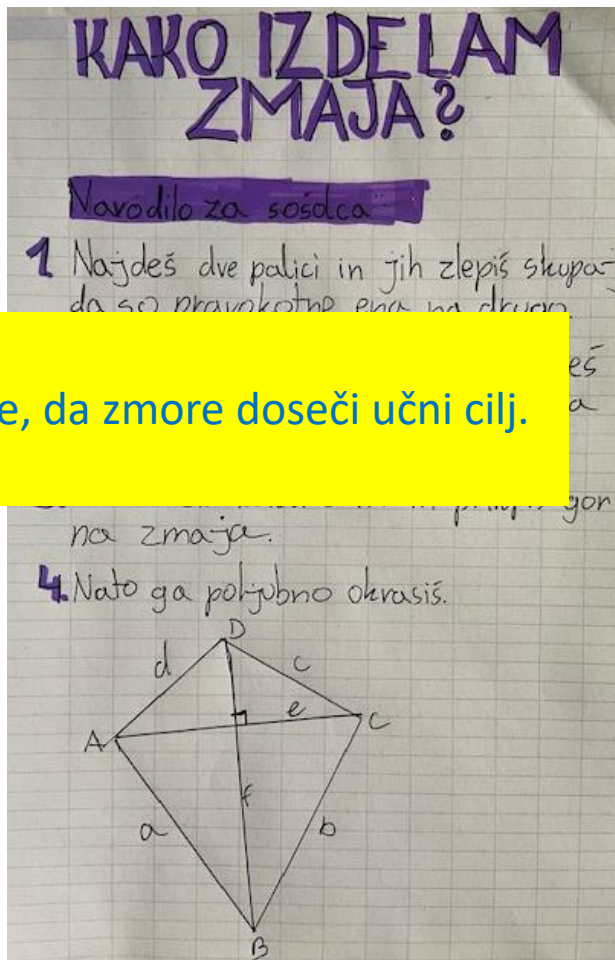 KAKO IZDELAM
ZMAJA?
Navodilo za sošolca
1 Najdeš dve palici in jih zlepiš skupaj
da so pravokotne ena na drugo.
eš
e, da zmore doseči učni cilj.
a
gor
na zmaja.
4. Nato ga poljubno okrasiš.
D
d
c
e
A
C
f
a
b
B